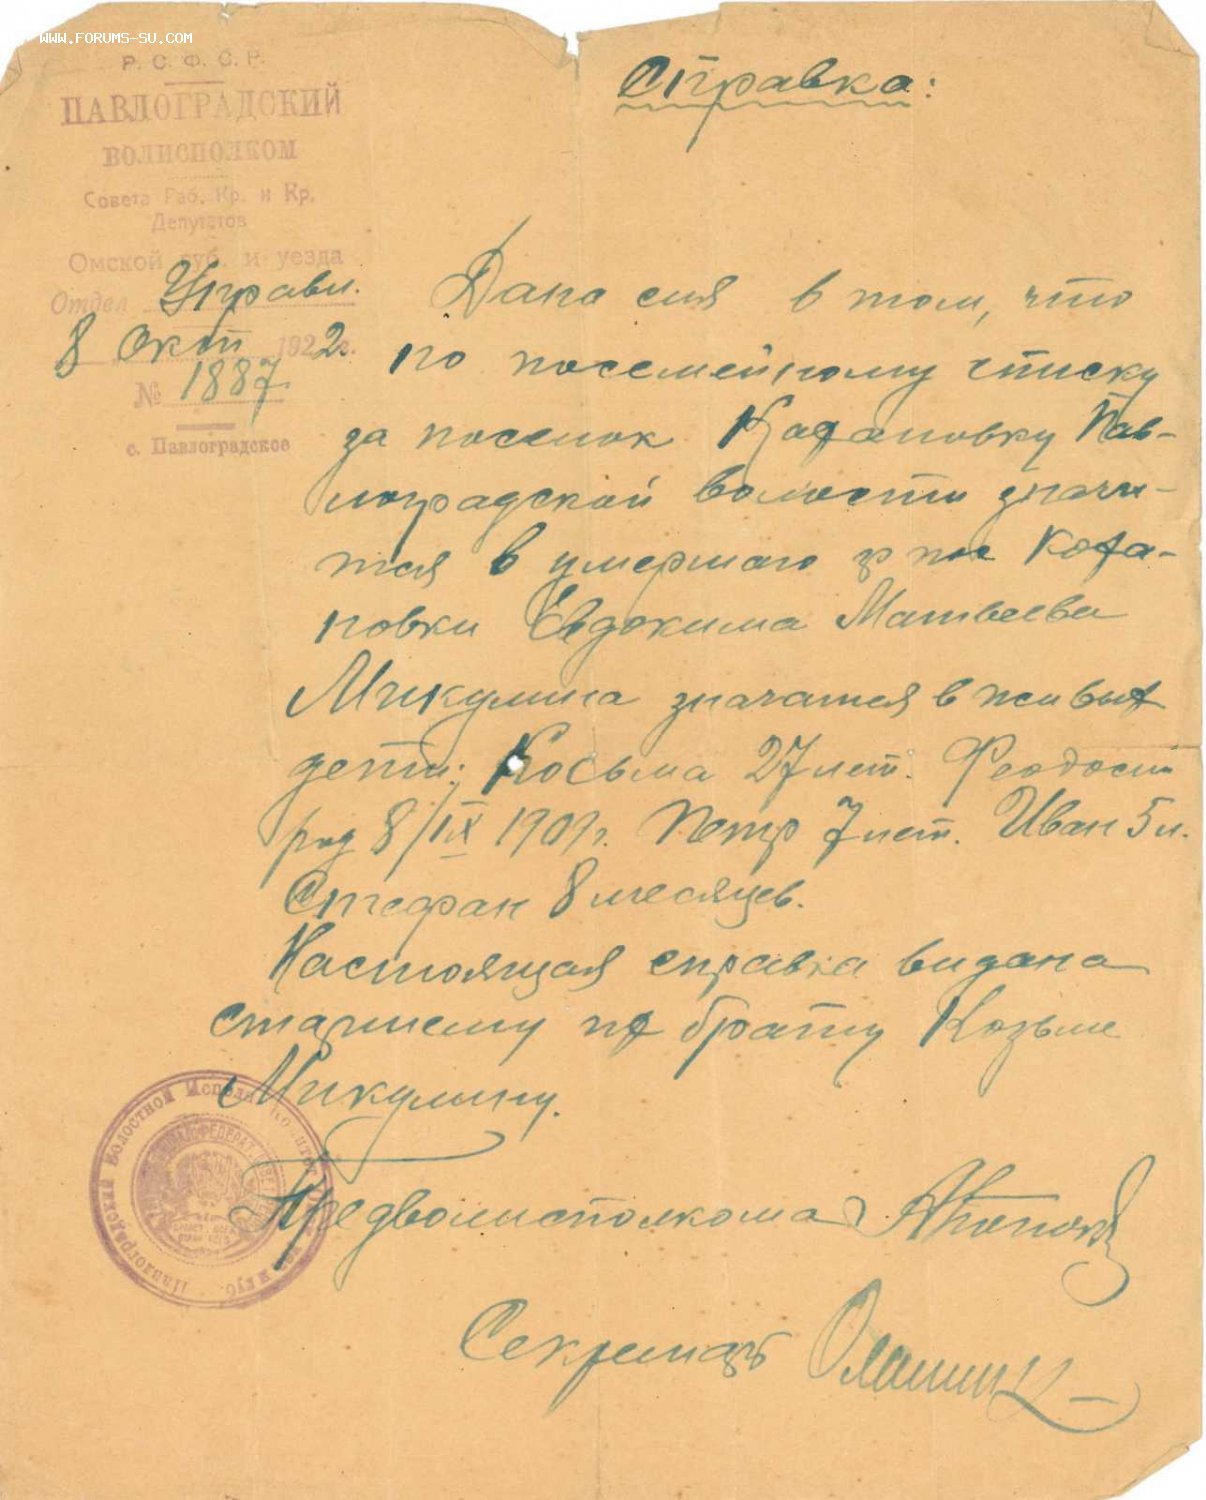 www.forums-su.com
Р. С. Ф. С. Р.
ПАВЛОГРАДСКИЙ
ВОЛИСПОЛКОМ
Совета Раб. Кр. и Кр.
Депутатов
Омской губ. и уезда
Отдел Управл.
8 Окт 1922г.
№ 1887
с. Павлоградское
Справка:
Дана сия в том, что
по посемейному списку
за поселок Кохановку Пав-
лоградской волости значи-
тся в умершаго гр пос Коха-
новки Евдокима Матвеева
Микулина значатся в живых
дети: Косьма 27 лет. Феодосий
род 8/IX 1909г. Петр 7 лет. Иван 5 л.
Стефан 8 месяцев.
Настоящая справка видана
старшему по брату Козьме
Микулину.
Предволисполкома
Секретарь
Павлоградский Волостной Исполн. Комитет